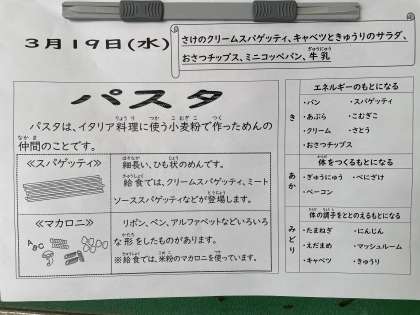 3月19日(水)
さけのクリームスパゲッティ、キャベツときゅうりのサラダ、
おさつチップス、ミニコッペパン、牛乳
ぎゅうにゅう
パスタ
パスタは、イタリア料理に使う小麦粉で作っためんの
りょうり つか こむぎこ つく
仲間のことです。
なかま
≪スパゲッティ≫
細長い、ひも状のめんです。
ほそなが じょう
給食では、クリームスパゲッティ、ミート
きゅうしょく
ソーススパゲッティなどが登場します。
とうじょう
≪マカロニ≫
ABC
リボン、ペン、アルファベットなどいろいろ
な形をしたものがあります。
かたち
※給食では、米粉のマカロニを使っています。
きゅうしょく こめこ つか
エネルギーのもとになる
き
・パン ・スパゲッティ
・あぶら ・こむぎこ
・クリーム ・さとう
・おさつチップス
体をつくるもとになる
からだ
あか
・ぎゅうにゅう ・べにざけ
・ベーコン
体の調子をととのえるもとになる
からだ ちょうし
みどり
・たまねぎ ・にんじん
・えだまめ ・マッシュルーム
・キャベツ ・きゅうり